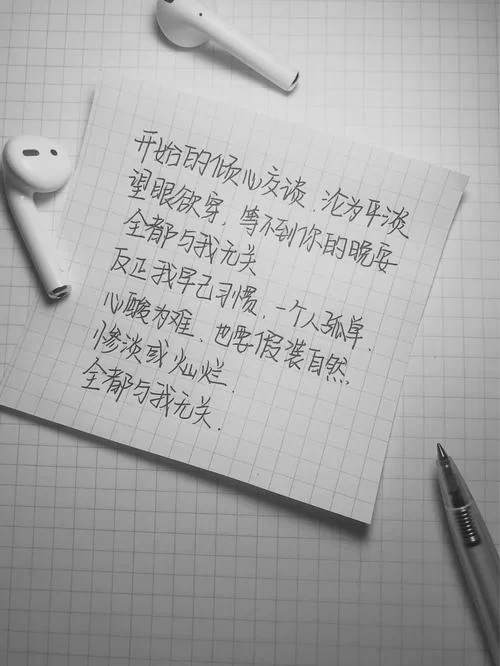 开始的倾心交谈.沦为平淡
望眼欲穿.等不到你的晚安
全都与我无关
反正我早已习惯.一个人孤单.
心酸为难.也要假装自然.
惨淡或灿烂.
全都与我无关.